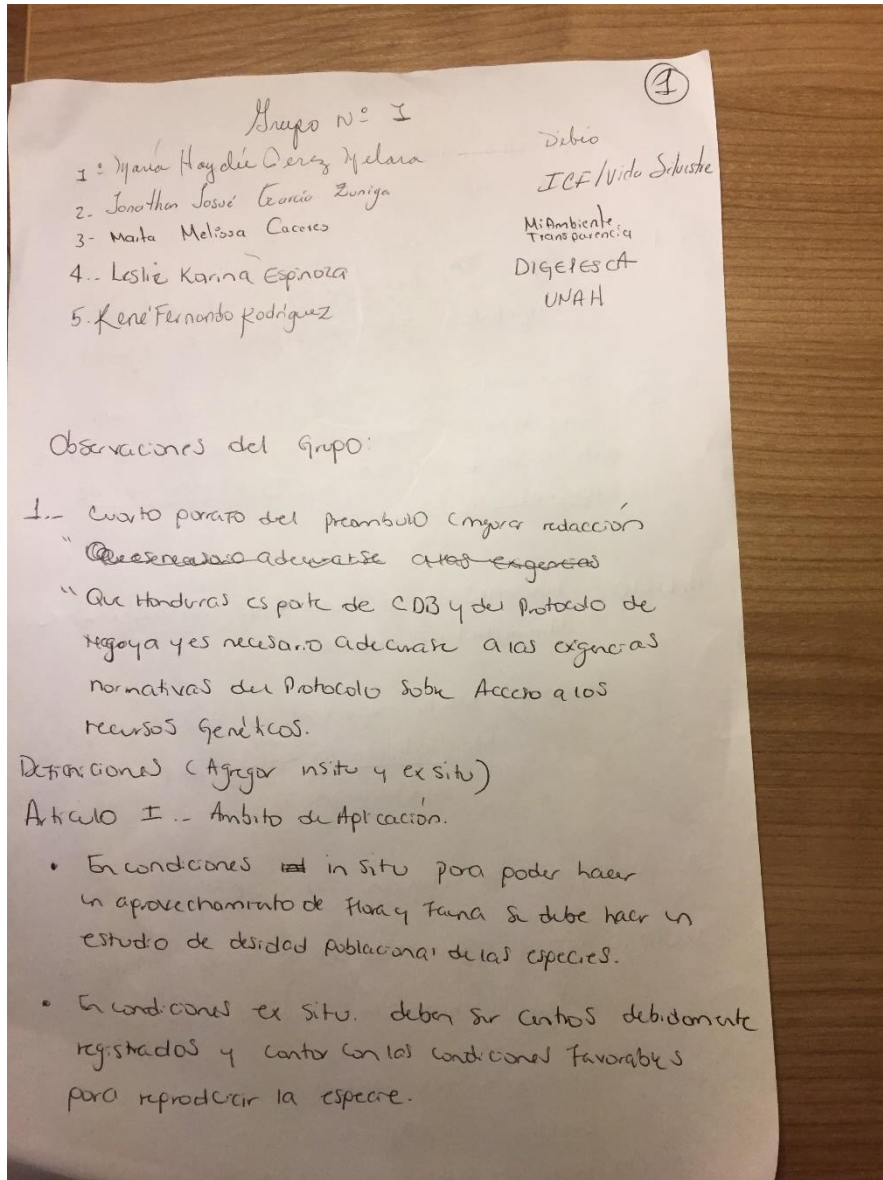 1
Grupo Nº I
1º María Haydée Perez Melara Dibio
2- Jonathan Josué García Zuniga ICF/Vida Silvestre
3- Marta Melissa Caceres MiAmbiente Transparencia
4.- Leslie Karina Espinoza DIGEPESCA
5. René Fernando Rodríguez UNAH
Observaciones del Grupo:
1.- Cuarto parrafo del preambulo (mejorar redacción
" adecuarse a las exigencias
" Que Honduras es parte de CDB y del Protocolo de
Nagoya y es necesario adecuarse a las exigencias
normativas del Protocolo Sobre Acceso a los
recursos Genéticos.
Definiciones (Agregar insitu y ex situ)
Artículo I .- Ambito de Aplicación.
• En condiciones in situ para poder hacer
un aprovechamiento de flora y fauna se debe hacer un
estudio de desidad poblacional de las especies.
• En condiciones ex situ. deben ser centros debidamente
registrados y contar con las condiciones favorables
para reproducir la especie.